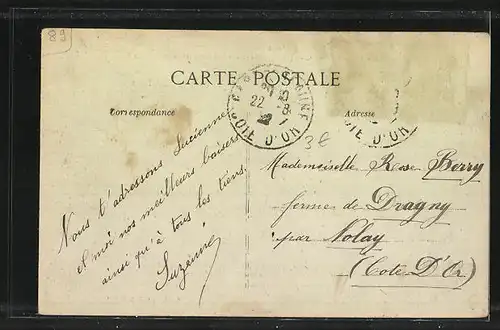 CARTE POSTALE
Correspondance
Adresse
22
COTE D'OR
3€
Nous t'adressons Lucienne
et moi nos meilleurs baisers
ainsi qu'à tous les tiens.
Suzanne
Mademoiselle Rose Berry
ferme de Dragny
par Nolay
(Cote D'Or)